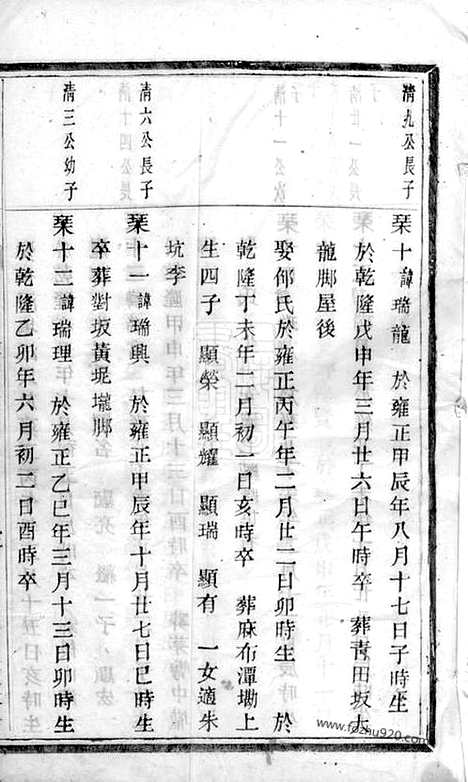 清九公長子
琹十 諱瑞龍 於雍正甲辰年八月十七日子時生
於乾隆戊申年三月廿六日午時卒 葬青田坂大
龍脚屋後
娶邱氏於雍正丙午年二月廿二日卯時生 於
乾隆丁未年二月初一日亥時卒 葬麻布潭墈上
生四子 顯榮 顯耀 顯瑞 顯有 一女適朱
坑李
清六公長子
琹十一諱瑞興 於雍正甲辰年十月廿七日巳時生
卒葬對坂黃坭壠脚
清三公幼子
琹十二諱瑞理 於雍正乙巳年三月十三日卯時生
於乾隆乙卯年六月初二日酉時卒
www.fozhu920.com